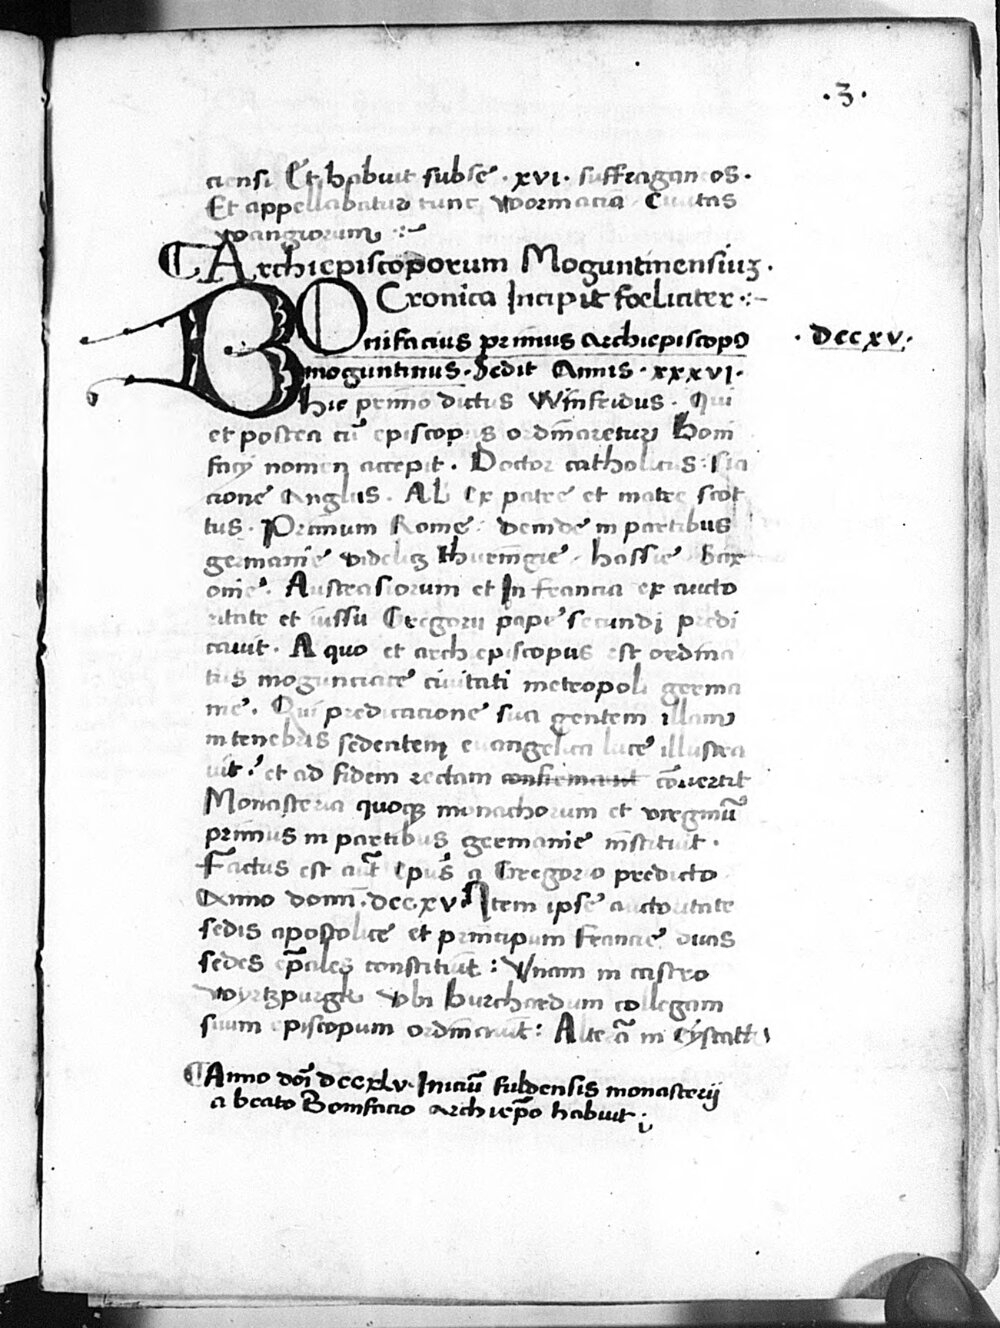 .3.
ciensi Et habuit subse · xvi · suffraganeos.
Et appellabatur tunc Wormacia Ciuitas
wangiorum
Archiepiscoporum Moguntinensiuȝ.
Cronica Incipit foeliciter :-
BOnifacius primus archiepiscopo · Dccxv.
moguntinus. Sedit Annis · xxxvi.
hic primo dictus Winfridus. Qui
et postea cū episcopus ordinaretur Boni
facij nomen accepit. Doctor catholicus: Na
cione Anglus. Al Ex patre et matre Scot
tus. Primum Rome. deinde in partibus
germanie videlicȝ thuringie. hassie Sax
onie. Austrasiorum et In francia ex aucto
ritate et iussu Gregorij pape secundi predi
cauit. A quo et archiepiscopus est ordina
tus mogunciace ciuitati metropoli germa
nie. Qui predicacione sua gentem illam
in tenebris sedentem euangelica luce illustra
uit: et ad fidem rectam confirmauit cōuertit
Monasteria quoqȝ monachorum et virginū
primus in partibus germanie instituit.
Factus est aūt Epūs a Gregorio predicto
Anno domī. dccxv. Item ipse auctoritate
sedis apostolice et principum francie duas
sedes ep̄ales constituit: Vnam in castro
wyrtzpurgk Vbi Burchardum collegam
suum episcopum ordinauit: Alterā in Eystatt
Anno doī dccxlv. Iniciū fuldensis monasterij
a beato Bonifacio archiep̄o habuit